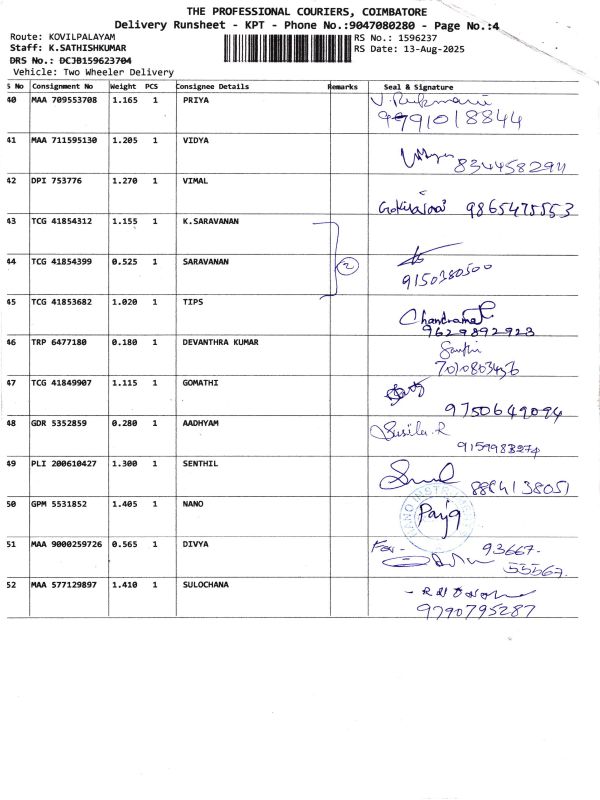 THE PROFESSIONAL COURIERS, COIMBATORE
Delivery Runsheet - KPT - Phone No.:9047080280 - Page No.:4
Route: KOVILPALAYAM RS No.: 1596237
Staff: K.SATHISHKUMAR RS Date: 13-Aug-2025
DRS No.: DCJB159623704
Vehicle: Two Wheeler Delivery
S No Consignment No Weight PCS Consignee Details Remarks Seal & Signature
40 MAA 709553708 1.165 1 PRIYA
9791018844
41 MAA 711595130 1.205 1 VIDYA
8344582911
42 DPI 753776 1.270 1 VIMAL
9865475553
43 TCG 41854312 1.155 1 K.SARAVANAN
2
44 TCG 41854399 0.525 1 SARAVANAN
9150380500
45 TCG 41853682 1.020 1 TIPS
9629892923
46 TRP 6477180 0.180 1 DEVANTHRA KUMAR
7010803456
47 TCG 41849907 1.115 1 GOMATHI
9750649094
48 GDR 5352859 0.280 1 AADHYAM
Susila.R
49 PLI 200610427 1.300 1 SENTHIL
50 GPM 5531852 1.405 1 NANO
51 MAA 9000259726 0.565 1 DIVYA
For - 93667-
55567.
52 MAA 577129897 1.410 1 SULOCHANA
9790795287